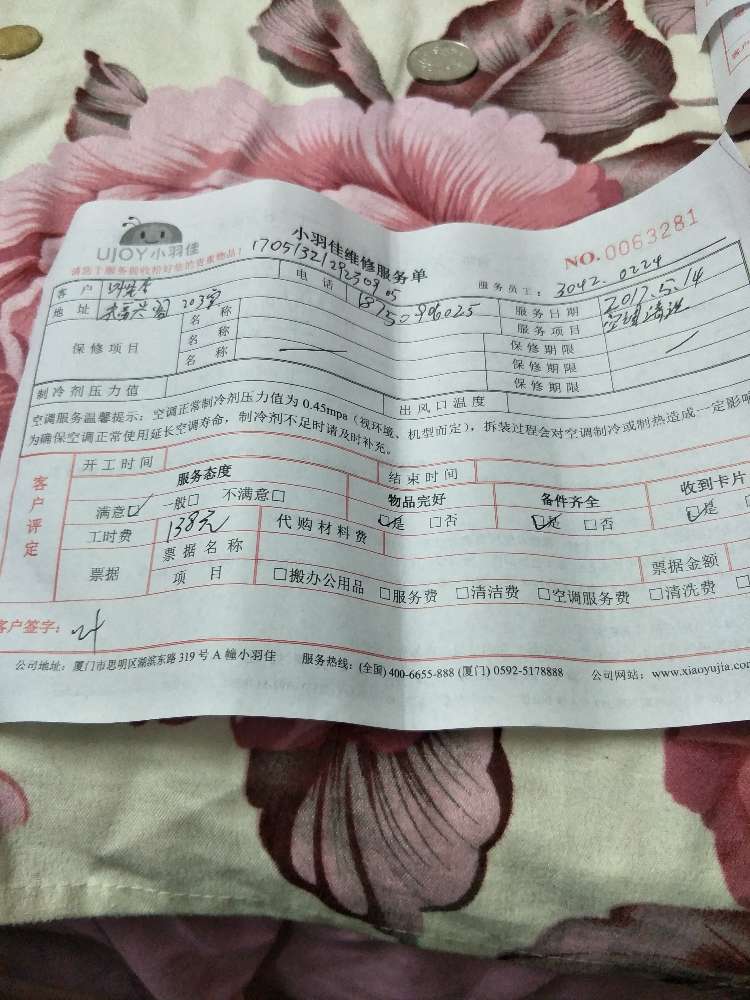 UJOY小羽佳
请您于服务前收拾好您的贵重物品!
小羽佳维修服务单
NO.0063281
服务员工: 3042.0224
客户 电话 服务日期 2017.5.14
地址 203室 服务项目 空调清洗
保修项目 名称 保修期限
名称 保修期限
名称 保修期限
制冷剂压力值 出风口温度
空调服务温馨提示:空调正常制冷剂压力值为0.45mpa(视环境、机型而定),拆装过程会对空调制冷或制热造成一定影响
为确保空调正常使用延长空调寿命,制冷剂不足时请及时补充。
客户评定
开工时间 结束时间
服务态度 物品完好 备件齐全 收到卡片
满意☑ 一般□ 不满意□ ☑是 □否 ☑是 □否 ☑是
工时费 138元 代购材料费
票据 票据名称 票据金额
项目 □搬办公用品 □服务费 □清洁费 □空调服务费 □清洗费
客户签字: 叶
公司地址:厦门市思明区湖滨东路319号A幢小羽佳 服务热线:(全国)400-6655-888 (厦门) 0592-5178888 公司网站:www.xiaoyujia.com